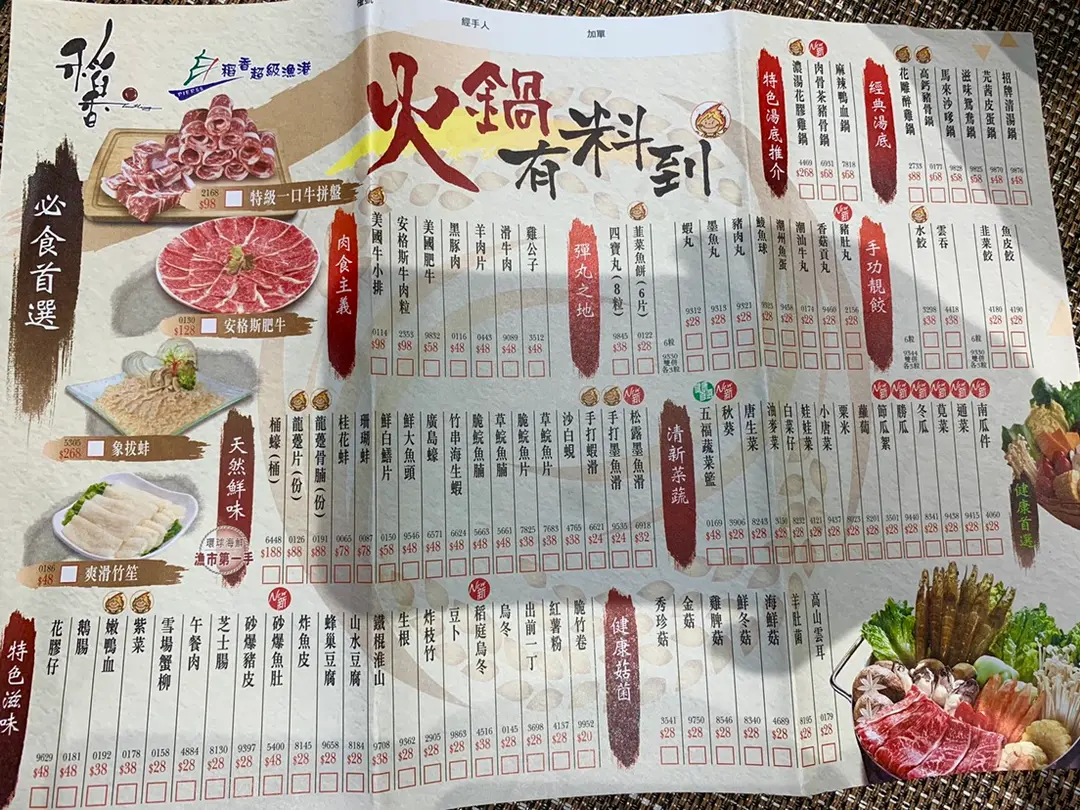 經手人
加單
稻香
稻香超級漁港
PIER88
火鍋有料到
必食首選
2168 $98 特級一口牛拼盤
0130 $128 安格斯肥牛
5305 $268 象拔蚌
0186 $48 爽滑竹笙
特色湯底推介
濃湯花膠雞鍋 4469 $268
肉骨茶豬骨鍋 6931 $68
麻辣鴨血鍋 7818 $68
經典湯底
花雕醉雞鍋 2733 $88
高鈣豬骨鍋 0173 $68
馬來沙嗲鍋 9828 $58
滋味鴛鴦鍋 9825 $58
芫茜皮蛋鍋 9870 $48
招牌清湯鍋 9876 $48
肉食主義
美國牛小排 0114 $98
安格斯牛肉粒 2353 $98
美國肥牛 9832 $58
黑豚肉 0116 $48
羊肉片 0443 $48
滑牛肉 9089 $48
雞公子 3512 $48
彈丸之地
四寶丸(8粒) 9845 $38
韮菜魚餅(6片) 0122 $28
6粒
9330 雙併各3粒
蝦丸 9312 $28
墨魚丸 9313 $28
豬肉丸 9321 $28
鯪魚球 9325 $28
潮州魚蛋 9458 $28
潮汕牛丸 0174 $28
香菇貢丸 9460 $28
豬肚丸 2156 $28
手功靚餃
6粒
9344 雙併各3粒
水餃 3298 $38
雲吞 4418 $38
6粒
9330 雙併各3粒
韭菜餃 4180 $28
魚皮餃 4190 $28
天然鮮味
環球海鮮
漁市第一手
桶蠔(桶) 6448 $188
龍躉片(份) 0126 $88
龍躉骨腩(份) 0191 $88
桂花蚌 0065 $78
珊瑚蚌 0087 $78
鮮白鱔片 0150 $58
鮮大魚頭 9546 $48
廣島蠔 6571 $48
竹串海生蝦 6624 $48
脆鯇魚腩 5663 $48
草鯇魚腩 5661 $38
脆鯇魚片 7825 $38
草鯇魚片 7683 $38
沙白蜆 4765 $38
手打蝦滑 6621 $24
手打墨魚滑 9535 $24
松露墨魚滑 6918 $32
清新菜蔬
五福蔬菜籃 0169 $48
秋葵 3906 $28
唐生菜 8243 $28
油麥菜 3150 $28
白菜仔 8232 $28
娃娃菜 0121 $28
小唐菜 9437 $28
粟米 8023 $28
蘿蔔 8201 $28
節瓜絮 3501 $28
勝瓜 9440 $28
冬瓜 8341 $28
莧菜 9438 $28
通菜 9415 $28
南瓜件 4060 $28
健康首選
特色滋味
花膠仔 9629 $48
鵝腸 0181 $48
嫩鴨血 0192 $38
紫菜 0178 $38
雪場蟹柳 0158 $28
午餐肉 4884 $28
芝士腸 8130 $28
砂爆豬皮 9397 $28
砂爆魚肚 5400 $28
炸魚皮 8145 $28
蜂巢豆腐 9658 $28
山水豆腐 8184 $28
鐵棍淮山 9708 $38
生根 9362 $28
炸枝竹 2905 $28
豆卜 9863 $28
稻庭烏冬 4516 $28
烏冬 0145 $28
出前一丁 3698 $28
紅薯粉 4137 $28
脆竹卷 9952 $20
健康菇菌
秀珍菇 3541 $28
金菇 9750 $28
雞脾菇 8546 $28
鮮冬菇 8340 $28
海鮮菇 4689 $28
羊肚菌 8195 $28
高山雲耳 0179 $28